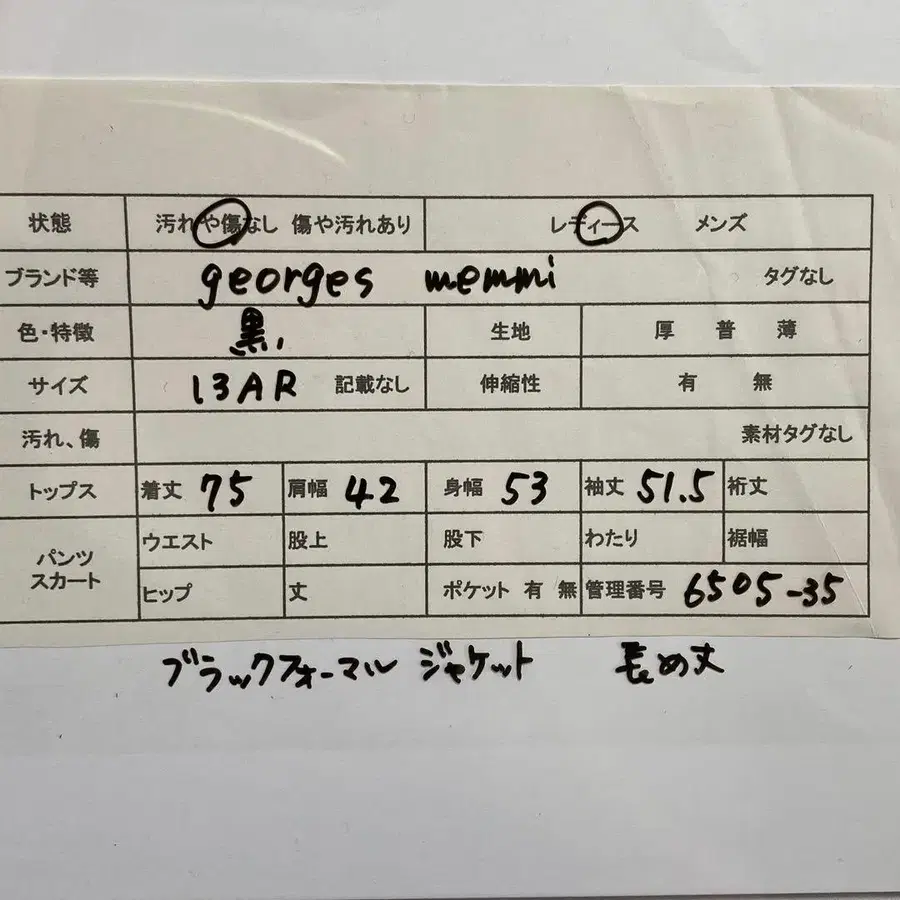 状態 汚れや傷なし 傷や汚れあり レディース メンズ
ブランド等 georges memmi タグなし
色・特徴 黒 生地 厚 普 薄
サイズ 13AR 記載なし 伸縮性 有 無
汚れ、傷 素材タグなし
トップス 着丈 75 肩幅 42 身幅 53 袖丈 51.5 裄丈
パンツ スカート ウエスト 股上 股下 わたり 裾幅
ヒップ 丈 ポケット 有 無 管理番号 6505-35
ブラックフォーマル ジャケット 長め丈